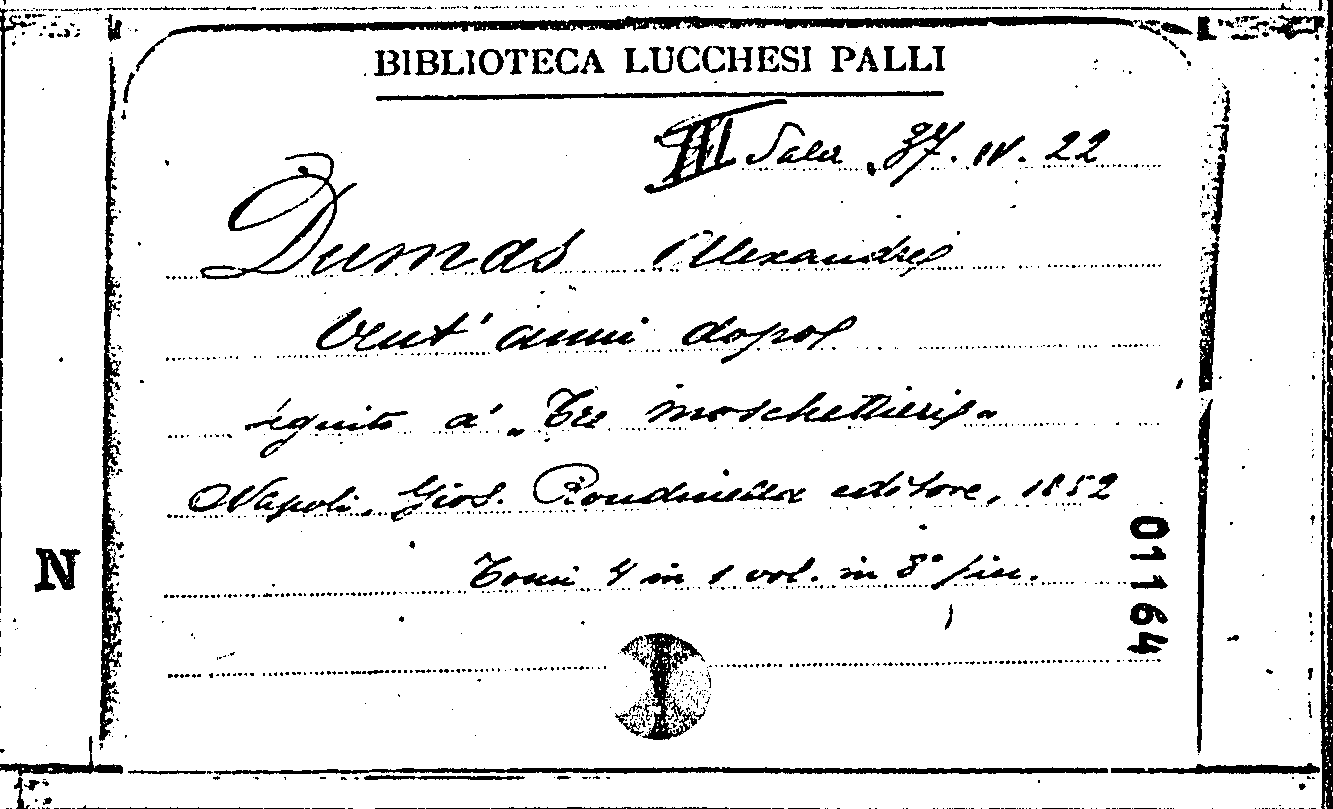 BIBLIOTECA LUCCHESI PALLI
III Sala 37. IV. 22
Dumas Alexandre
Vent' anni dopo
séguito a' „Tre moschettieri„
Napoli, Gios. Rondinella editore, 1852
Tomi 4 in 1 vol. in 8° picc.
N
01164